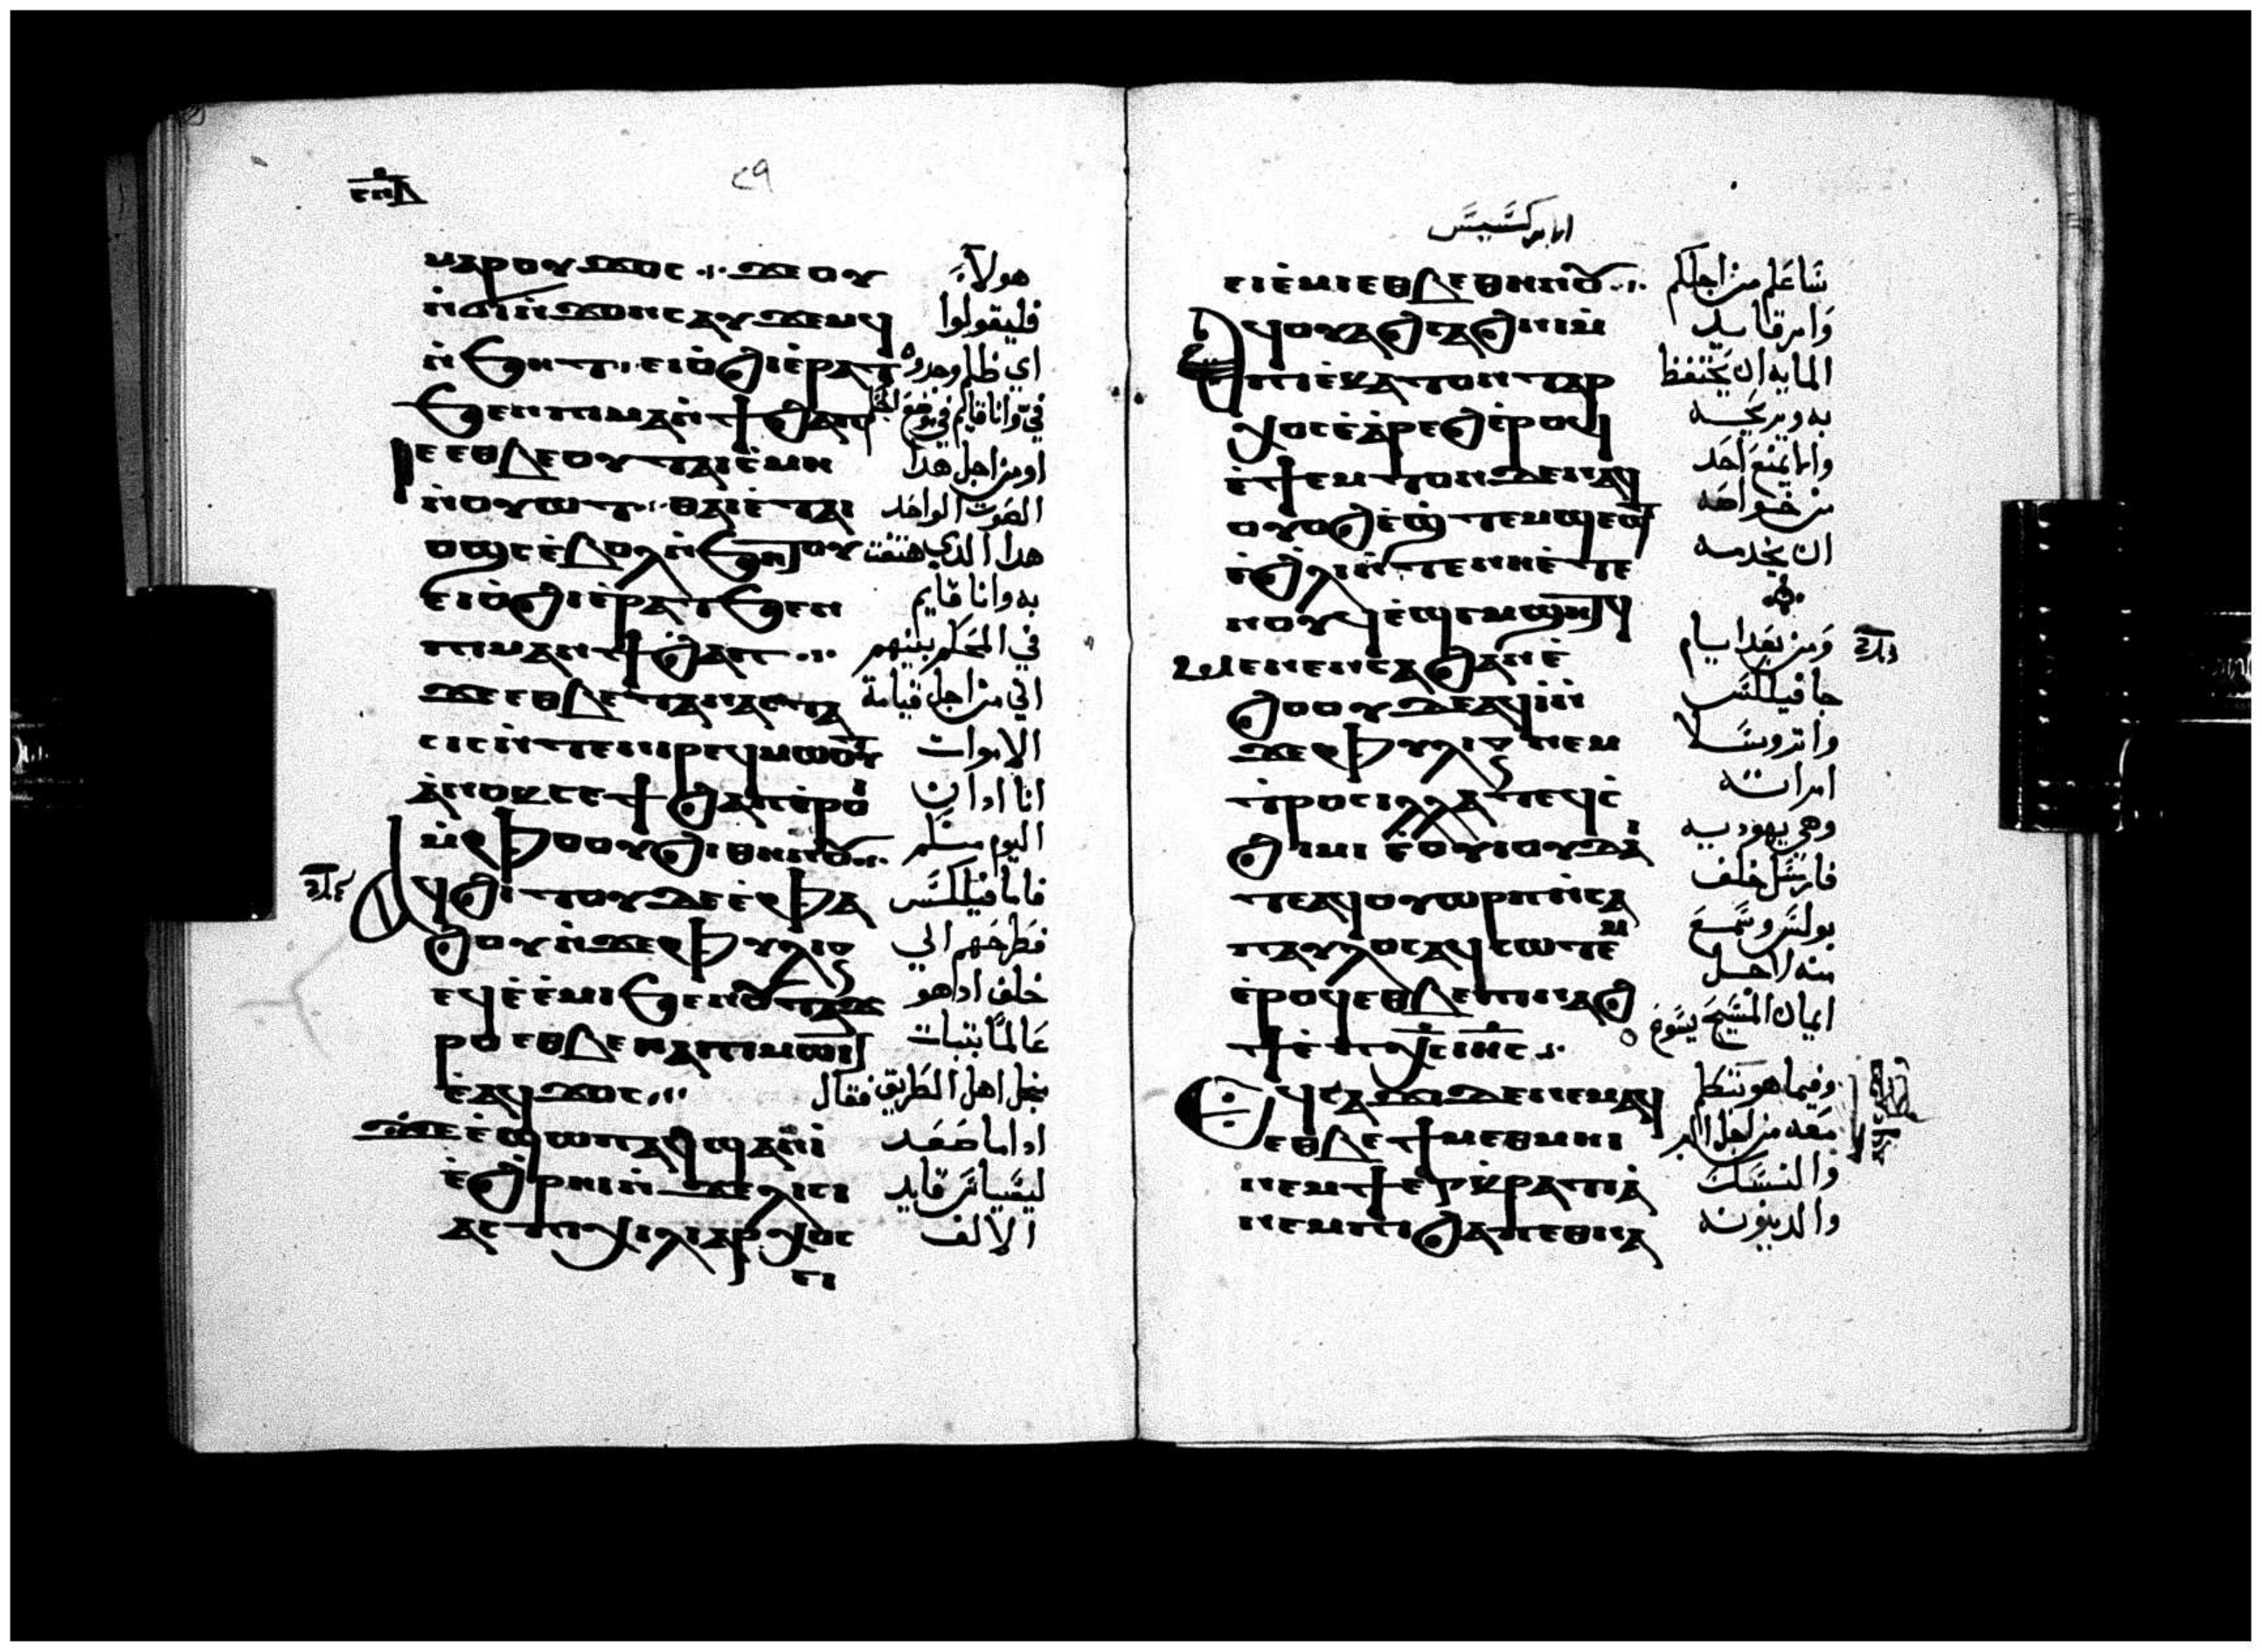 ٢٩
ⲙⲁⲣⲟⲩϫⲟⲥ ⲓ ϫⲉⲟⲩ هولاء
ⲛ̇ϭⲓⲛ̇ϫⲟⲛⲥⲁⲩϫⲉⲙϥ فليقولوا
ⲛ̇ϧⲏⲧ ⲉⲓⲟ̇ϩⲓⲉ̇ⲣⲁⲧ اي ظلم وجدوه
ϧⲉⲛⲡⲓⲙⲁⲛ̇ϯϩⲁⲡ في وانا قايم في موضع
ⲓⲉ ⲉⲑⲃⲉⲟⲩⲧⲁⲓⲥ̇ⲙⲏ او من اجل هدا
ⲛ̇ⲟⲩⲱⲧ ⲑⲁⲓⲉ̇ⲧⲁⲓ الصوت الواحد
ⲟϣⲥ ⲉ̇ⲃⲟⲗⲛ̇ϧⲏⲧⲟⲩ هدا الدي هتفت
ⲉⲓⲟ̇ϩⲓⲉ̇ⲣⲁⲧϧⲉⲛ به وانا قايم
ⲡⲓⲙⲁⲛϯϩⲁⲡ في المحكم بينهم
ϫⲉⲉⲑⲃⲉⲧⲁⲛⲁⲥⲧⲁ اني من اجل قيامة
ⲥⲓⲥⲛ̇ⲧⲉⲛⲓⲣⲉϥⲙⲱⲟⲩⲧ الاموات
ⲁ̇ⲛⲟⲕⲥⲉϯϩⲁⲡⲉ̇ⲣⲟⲓ انا ادان
ⲙ̇ⲫⲟⲟⲩϩⲓⲑⲏⲛⲟⲩ اليوم منكم
ⲁϥϩⲓⲧⲟⲩϫⲉⲉ̇ⲫⲁ فاما فيلكس
ϩⲟⲩⲛ̇ϫⲉⲫⲩⲗⲓⲝ فطرحهم الي
ⲉϥⲉ̇ⲙⲓϧⲉⲛⲟⲩⲧⲁϫ خلف اد هو
ⲣⲟ ⲉⲑⲃⲉⲛⲁⲡⲓⲙⲱⲓⲧ عالما بتبات
ⲉ̇ⲁϥϫⲟⲥ اهل الطريق فقال
ϫⲉⲉ̇ϣⲱⲡⲁϥϣⲁⲛⲓ̇ ادا ما صعد
ⲉ̇ϩⲣⲏⲓⲛ̇ϫⲉⲗⲓⲥⲓ ليسياس قايد
ⲁⲥ ⲡⲓⲭⲓⲗⲓⲁⲣⲭⲟⲥ الالف
ⲉⲓ
ابركسيس
ⲉⲓⲉ̇ⲙⲓⲉⲑⲃⲉⲑⲏⲛⲟⲩ ساعلم من اجلكم
ⲁϥⲟⲩⲁϩⲥⲁϩⲛⲓⲙ̇ وامر قايد
ⲡⲓⲉ̇ⲕⲁⲧⲟⲛⲧⲁⲣ المايه ان يحتفظ
ⲭⲟⲥⲉ̇ⲁ̇ⲣⲉϩⲉ̇ⲣⲟϥ به ويريحه
ⲉ̇ϯⲉⲙⲧⲟⲛϫⲉⲛⲁϥ احد
ⲟⲩⲟϩⲉ̇ϣⲧⲉⲙϣⲉϣⲧ من خواصه
ⲉ̇ϩⲗⲓⲛ̇ⲧⲉⲛⲏⲉ̇ⲧⲉ ان يخدمه
ⲛⲟⲩϥⲉ̇ϣⲉⲙϣⲏⲧϥ
ⲙⲉⲛⲉⲛⲥⲁϩⲁⲛⲉ̇ ومن بعد ايام
ϩⲟⲟⲩϫⲉⲁϥⲓⲛ̇ جا فيلكس
ϫⲉⲫⲩⲗⲓⲝ ⲛⲉⲙ واتروسلا
ⲧ̇ⲣⲟⲥⲓⲗⲗⲁⲧⲉϥⲥ̇ امراته
ϩⲓⲙⲓ ⲉ̇ⲟⲩⲓⲟⲩϫⲁⲓ̇ وهي يهوديه
ⲧⲉⲁϥⲟⲩⲱⲣⲡⲛ̇ⲥⲁ فارسل خلف
ⲡⲁⲩⲗⲟⲥⲁϥⲥⲱⲧⲉⲙ بولس وسمع
ⲉ̇ⲣⲟϥⲉⲑⲃⲉⲡⲓⲛⲁϩ منه لاجل
ϯⲉ̇ⲡⲭ̅ⲥ̅ⲓⲏⲥ̅ ايمان المسيح يسوع
ⲉϥⲥⲁϫⲓϫⲉⲛⲉⲙⲁϥ وفيما هو يتكلم
ⲉⲑⲃⲉϯⲙⲉⲑⲙⲏⲓ معه من اجل البر
ⲛⲉⲙϯⲉⲣⲕ̇ⲣⲁⲧⲓⲁ̇ والنسك
ⲛⲉⲙⲡⲓϩⲁⲡⲉⲑⲛⲁ والدينونه